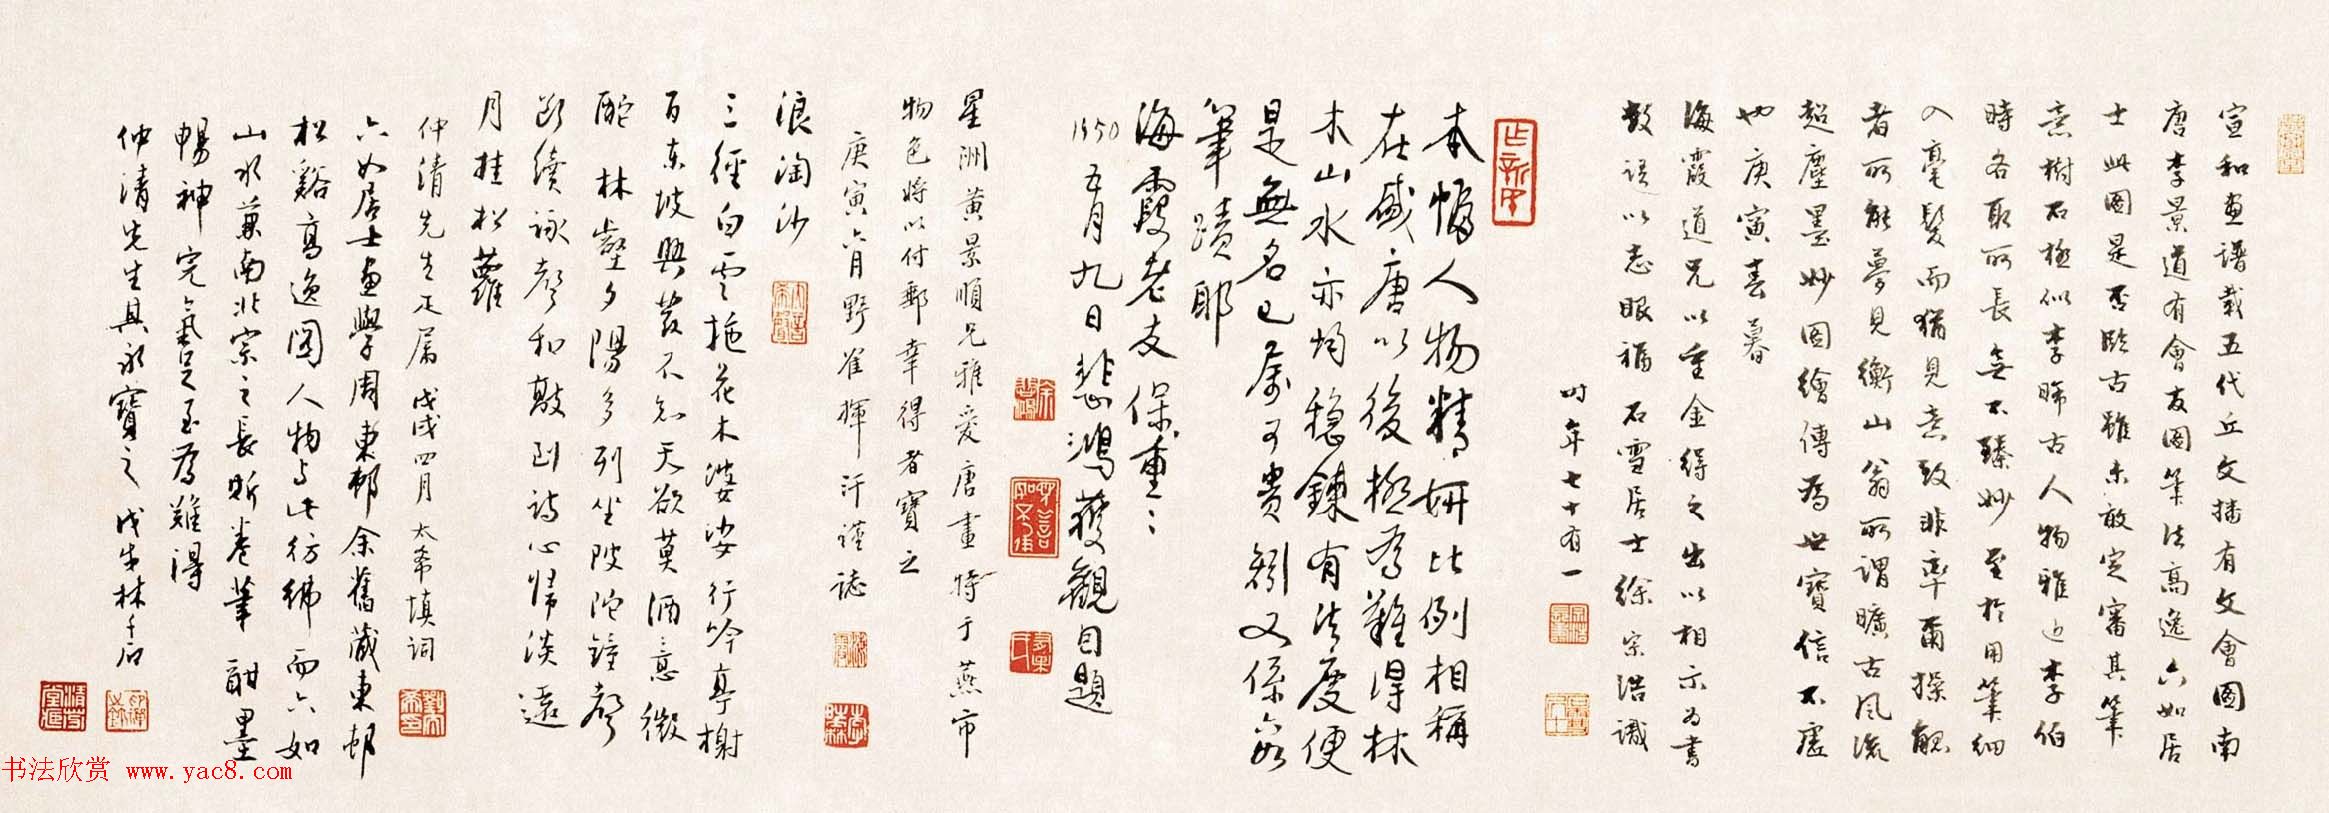 宣和畫譜載五代丘文播有文會圖南
唐李景道有會友圖筆法高逸六如居
士此圖是否臨古雖未敢定審其筆
意樹石極似李晞古人物雅近李伯
時各取所長無不臻妙至於用筆細
入毫髮而猶見意致非率爾操觚
者所能夢見衡山翁所謂曠古風流
超塵墨妙圖繪傳為世寶信不虛
也庚寅春暮
海霞道兄以重金得之出以相示為書
數語以志眼福石雪居士徐宗浩識
時年七十有一
本幅人物精妍比例相稱
在盛唐以後極為難得林
木山水亦均穩鍊有法度便
是無名已屬可貴矧又係真
筆蹟耶
海霞老友保重
1950五月九日悲鴻獲觀自題
星洲黃景順兄雅愛唐畫特于燕市
物色將以付郵幸得者寶之
庚寅六月野崔揮汗謹誌
浪淘沙
三徑白雲拖花木婆娑行吟亭榭
百東坡興發不知天欲莫酒意微
酡 林壑夕陽多列坐陂陀鐘聲
斷續詠聲和敲到詩心歸淡遠
月挂松蘿
仲清先生正屬戊戌四月太希填詞
六如居士畫學周東邨余舊藏東邨
松谿高逸圖人物與此彷彿而六如
山水兼南北宗之長斯卷筆酣墨
暢神完氣足至為難得
仲清先生其永寶之戊戌林千石
书法欣赏 www.yac8.com